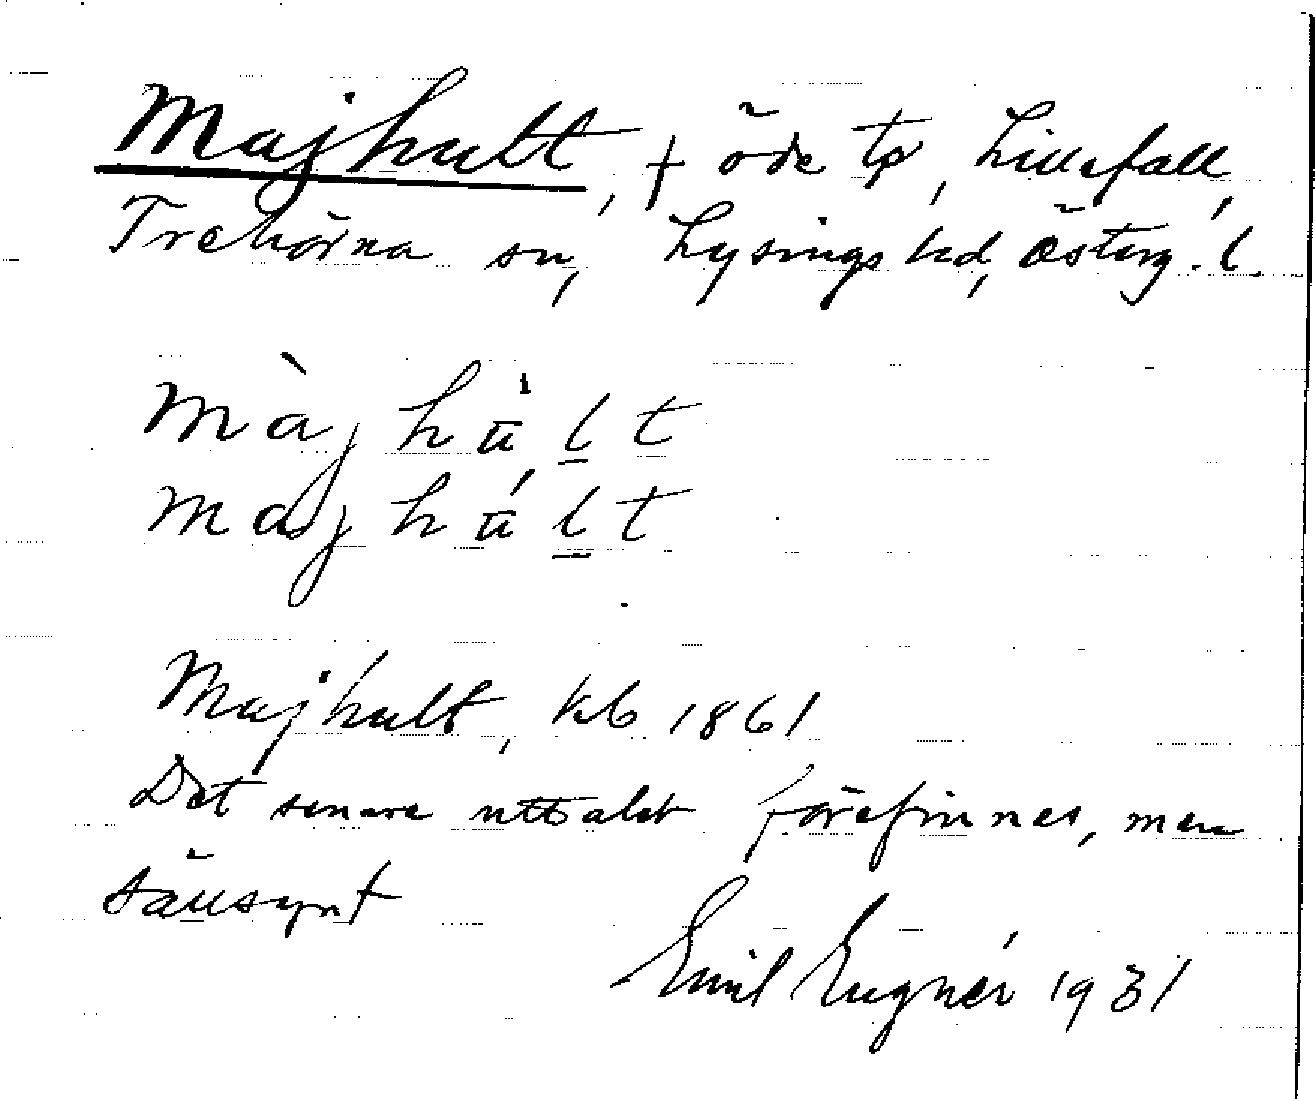 Majhult, † öde tp, Lillefall,
Trehörna sn, Lysings hd, Österg. l.
màj hù̄l̲t
maj hū́l̲t
Majhult, kb 1861
Det senare uttalet förefinnes, men
sällsynt
Emil Eugnér 1931